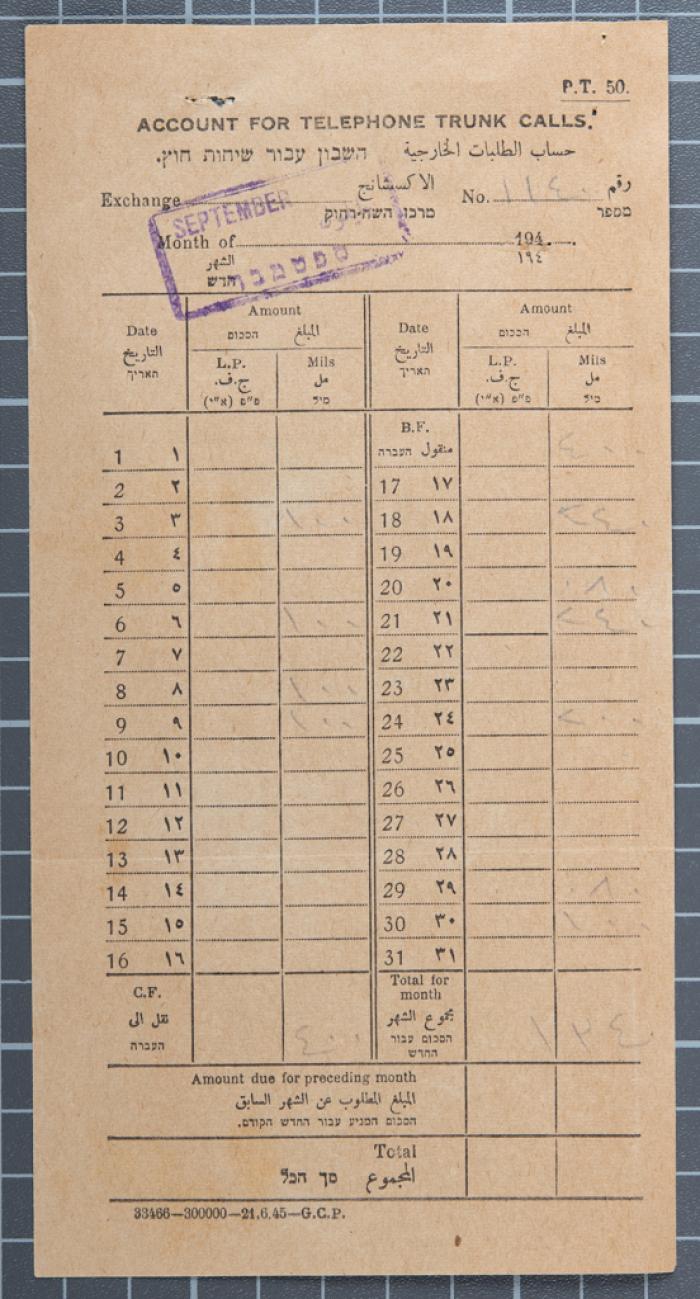 P.T. 50.
ACCOUNT FOR TELEPHONE TRUNK CALLS.
חשבון עבור שיחות חוץ. حساب الطلبات الخارجية
Exchange الاكسشانج No. ١١٤٠ رقم
מספר
SEPTEMBER
Month of 194 .
الشهر ١٩٤
חדש
ספטמבר
Date Amount Date Amount
التاريخ המכום المبلغ التاريخ הסכום المبلغ
תאריך L.P. Mils תאריך L.P. Mils
ج.ف. مل ج.ف. مل
פ״פ (א״י) מיל פ״פ (א״י) מיל
B.F.
1 ١ העברה منقول ٤٠٠
2 ٢ 17 ١٧
3 ٣ ١٠٠ 18 ١٨
4 ٤ 19 ١٩
5 ٥ 20 ٢٠ ٠٨٠
6 ٦ ١٠٠ 21 ٢١
7 ٧ 22 ٢٢
8 ٨ ١٠٠ 23 ٢٣
9 ٩ ١٠٠ 24 ٢٤ ٢٠٠
10 ١٠ 25 ٢٥
11 ١١ 26 ٢٦
12 ١٢ 27 ٢٧
13 ١٣ 28 ٢٨
14 ١٤ 29 ٢٩ ٠٨٠
15 ١٥ 30 ٣٠ ١٠٠
16 ١٦ 31 ٣١
C.F. Total for
month
نقل الى مجموع الشهر
העברה ٤٠٠ הסכום עבור ١٣٤٠
החדש
Amount due for preceding month
المبلغ المطلوب عن الشهر السابق
הסכום המגיע עבור החדש הקודם.
Total
סך הכל المجموع
33466—300000—21.6.45—G.C.P.